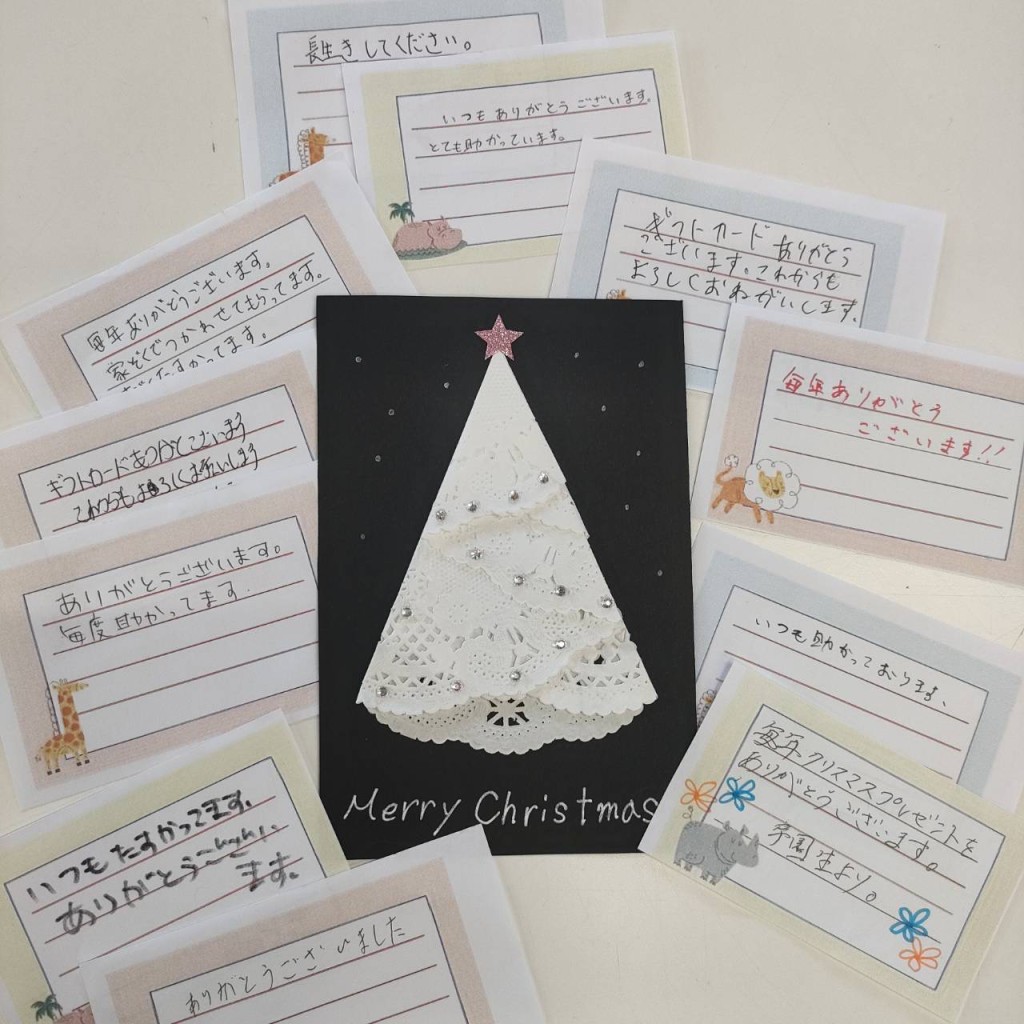 長生きしてください。
いつも ありがとうございます。
とても助かっています。
ギフトカード ありがとう
ございます。これからも
よろしくおねがいします。
毎年ありがとうございます。
家ぞくでつかわせてもらってます。
毎年ありがとう
ございます!!
ギフトカードありがとうございます
これからもよろしくお願いします
ありがとうございます。
毎度助かってます.
いつも助かっております。
毎年、クリスマスプレゼントを
ありがとうございます。
卒園生より。
いつもたすかってます.
ありがとうござい
ます。
ありがとうございました
Merry Christmas